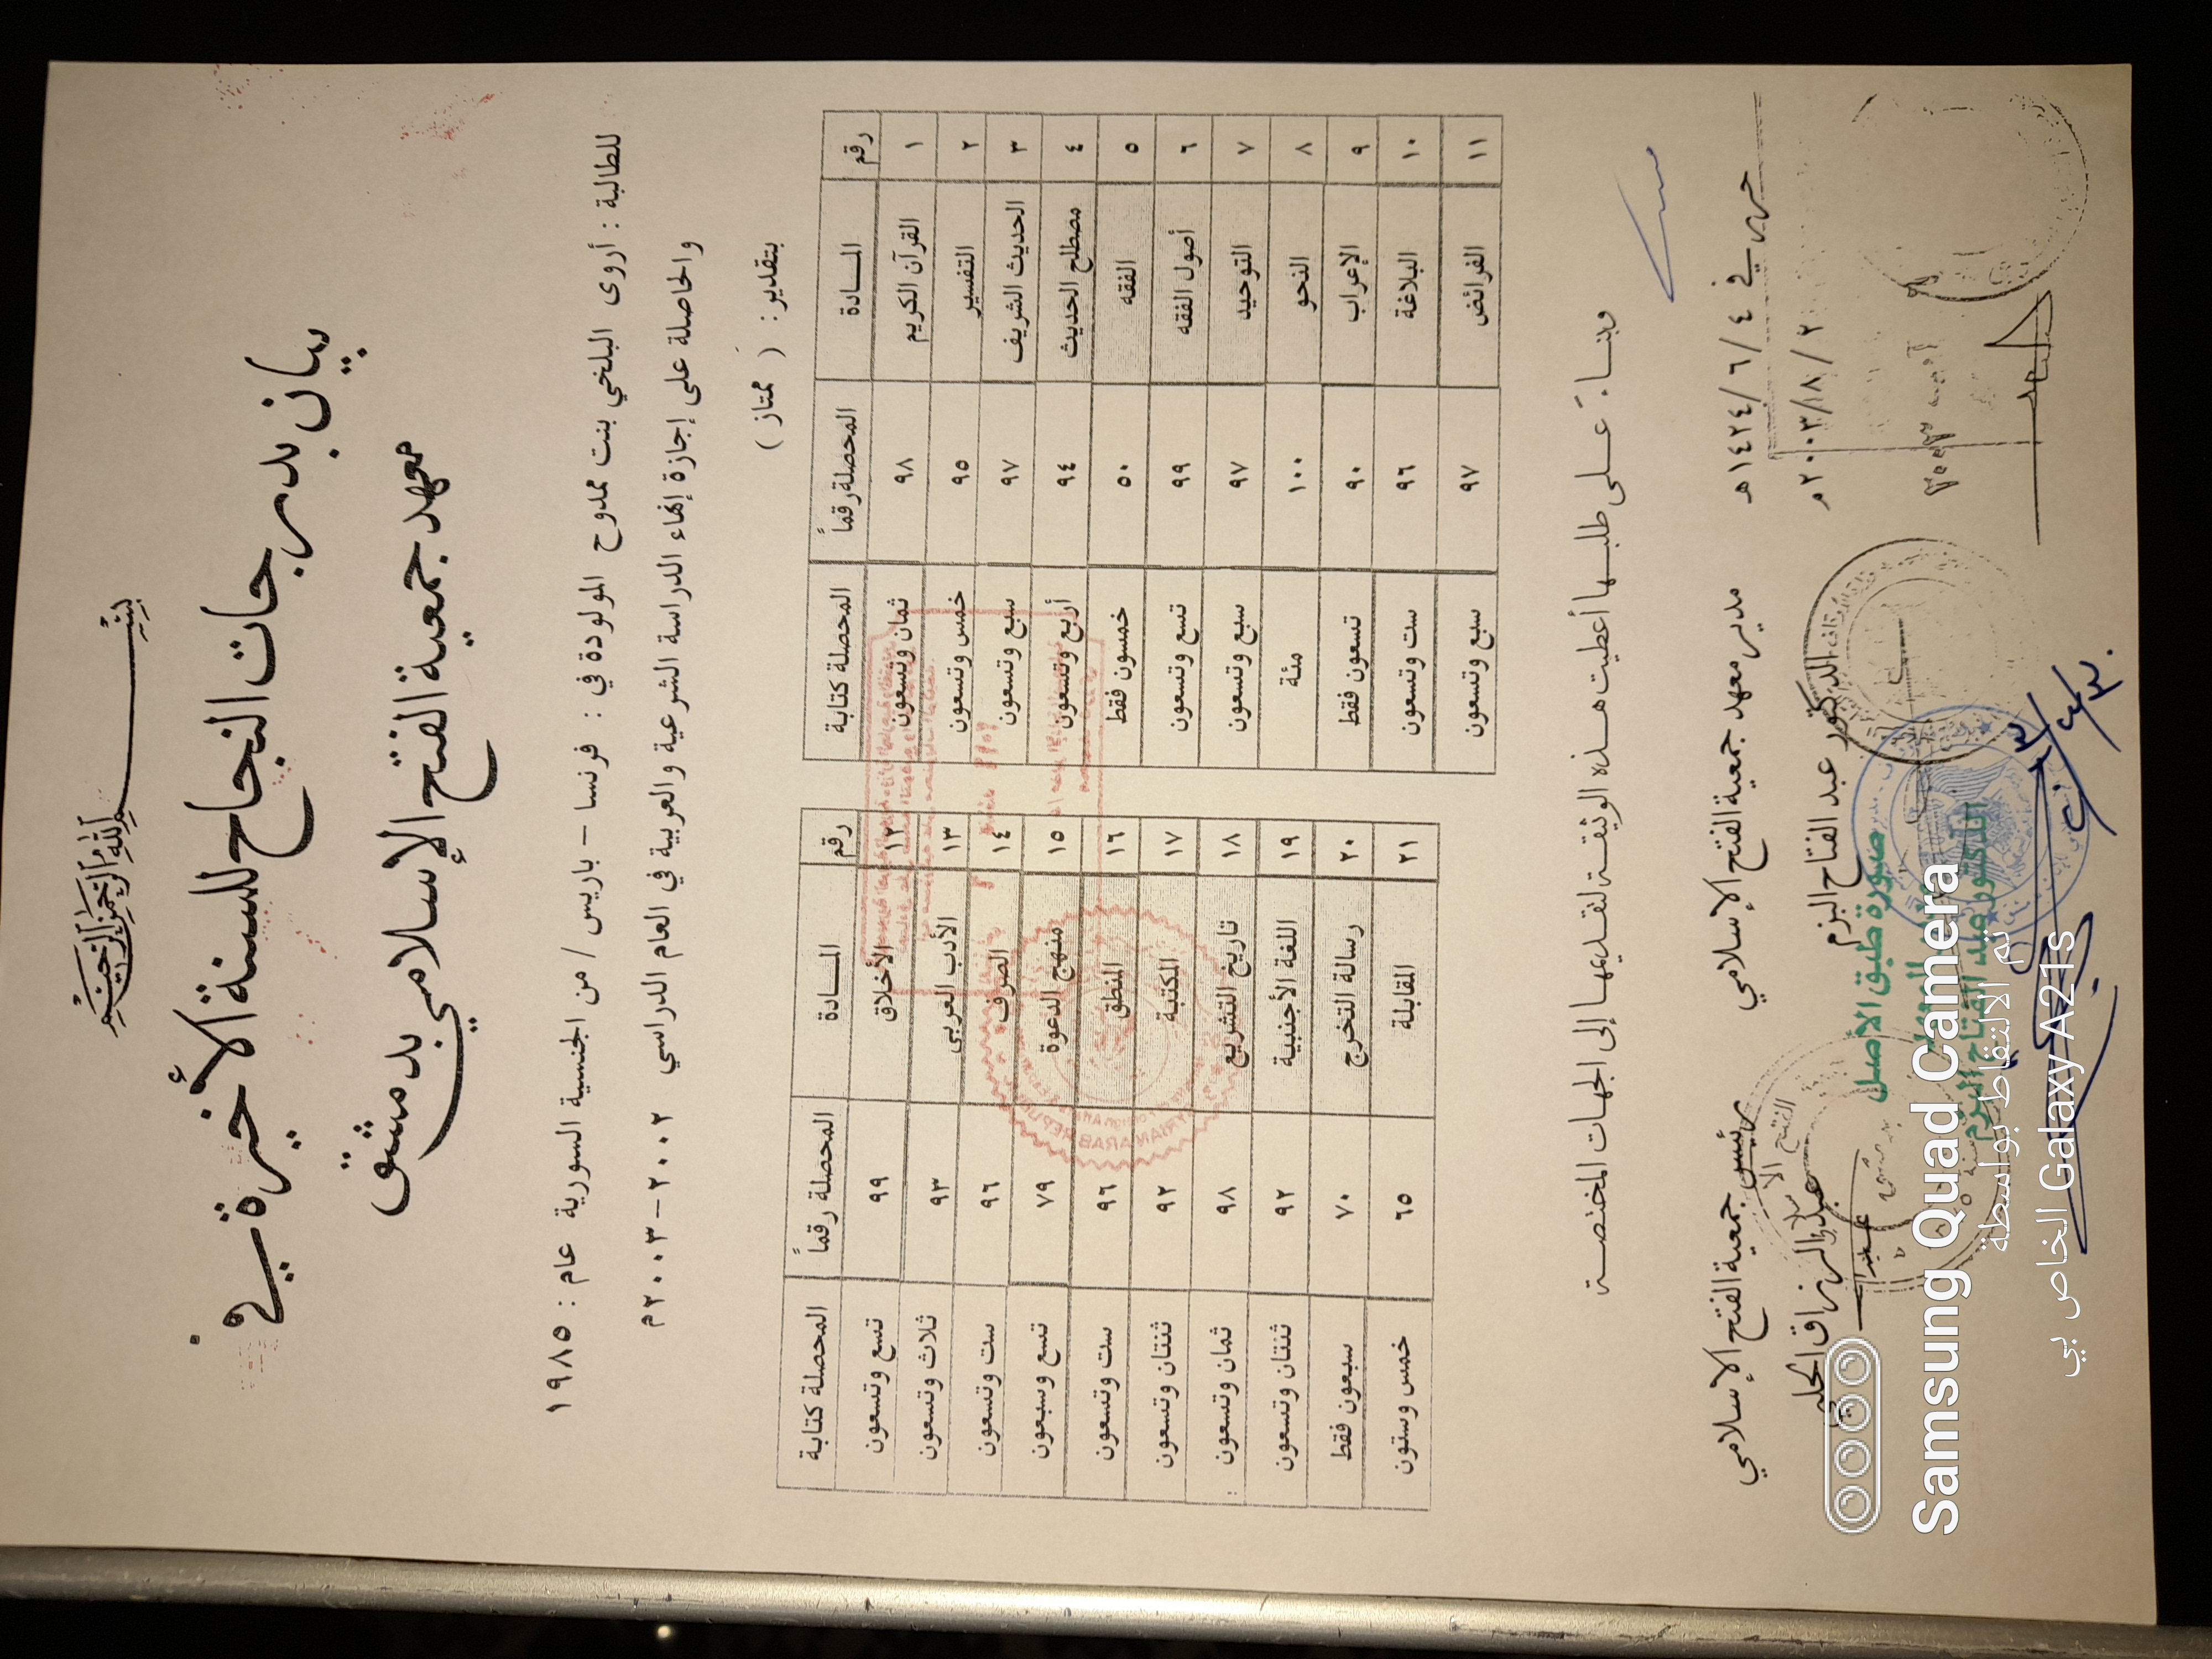 بسم الله الرحمن الرحيم
بيان بدرجات النجاح للسنة الأخيرة في
معهد جمعية الفتح الإسلامي بدمشق
للطالبة : أروى البلخي بنت ممدوح المولودة في : فرنسا – باريس / من الجنسية السورية عام : ١٩٨٥
والحاصلة على إجازة إنهاء الدراسة الشرعية والعربية في العام الدراسي ٢٠٠٢ – ٢٠٠٣م
بتقدير : ( ممتاز )
رقم المــادة المحصلة رقماً المحصلة كتابة
١ القرآن الكريم ٩٨ ثمان وتسعون
٢ التفسير ٩٥ خمس وتسعون
٣ الحديث الشريف ٩٧ سبع وتسعون
٤ مصطلح الحديث ٩٤ أربع وتسعون
٥ الفقه ٥٠ خمسون فقط
٦ أصول الفقه ٩٩ تسع وتسعون
٧ التوحيد ٩٧ سبع وتسعون
٨ النحو ١٠٠ مئة
٩ الإعراب ٩٠ تسعون فقط
١٠ البلاغة ٩٦ ست وتسعون
١١ الفرائض ٩٧ سبع وتسعون
رقم المــادة المحصلة رقماً المحصلة كتابة
١٢ الأخلاق ٩٩ تسع وتسعون
١٣ الأدب العربي ٩٣ ثلاث وتسعون
١٤ الصرف ٩٦ ست وتسعون
١٥ منهج الدعوة ٧٩ تسع وسبعون
١٦ المنطق ٩٦ ست وتسعون
١٧ المكتبة ٩٢ ثنتان وتسعون
١٨ تاريخ التشريع ٩٨ ثمان وتسعون
١٩ اللغة الأجنبية ٩٢ ثنتان وتسعون
٢٠ رسالة التخرج ٧٠ سبعون فقط
٢١ المقابلة ٦٥ خمس وستون
وبنــاءً عــلى طلبــها أعطيت هــذه الوثيقــة لتقــديمها إلى الجهات المختصــة
حرر في ٤ / ٦ / ١٤٢٤هـ
٢ / ٨ / ٢٠٠٣م
مدير معهد جمعية الفتح الإسلامي
الدكتور عبد الفتاح البزم
رئيس جمعية الفتح الإسلامي
عبد الرزاق الحلبي
صورة طبق الأصل
الدكتور عبد الفتاح البزم
Samsung Quad Camera
تم الالتقاط بواسطة
Galaxy A21s الخاص بي